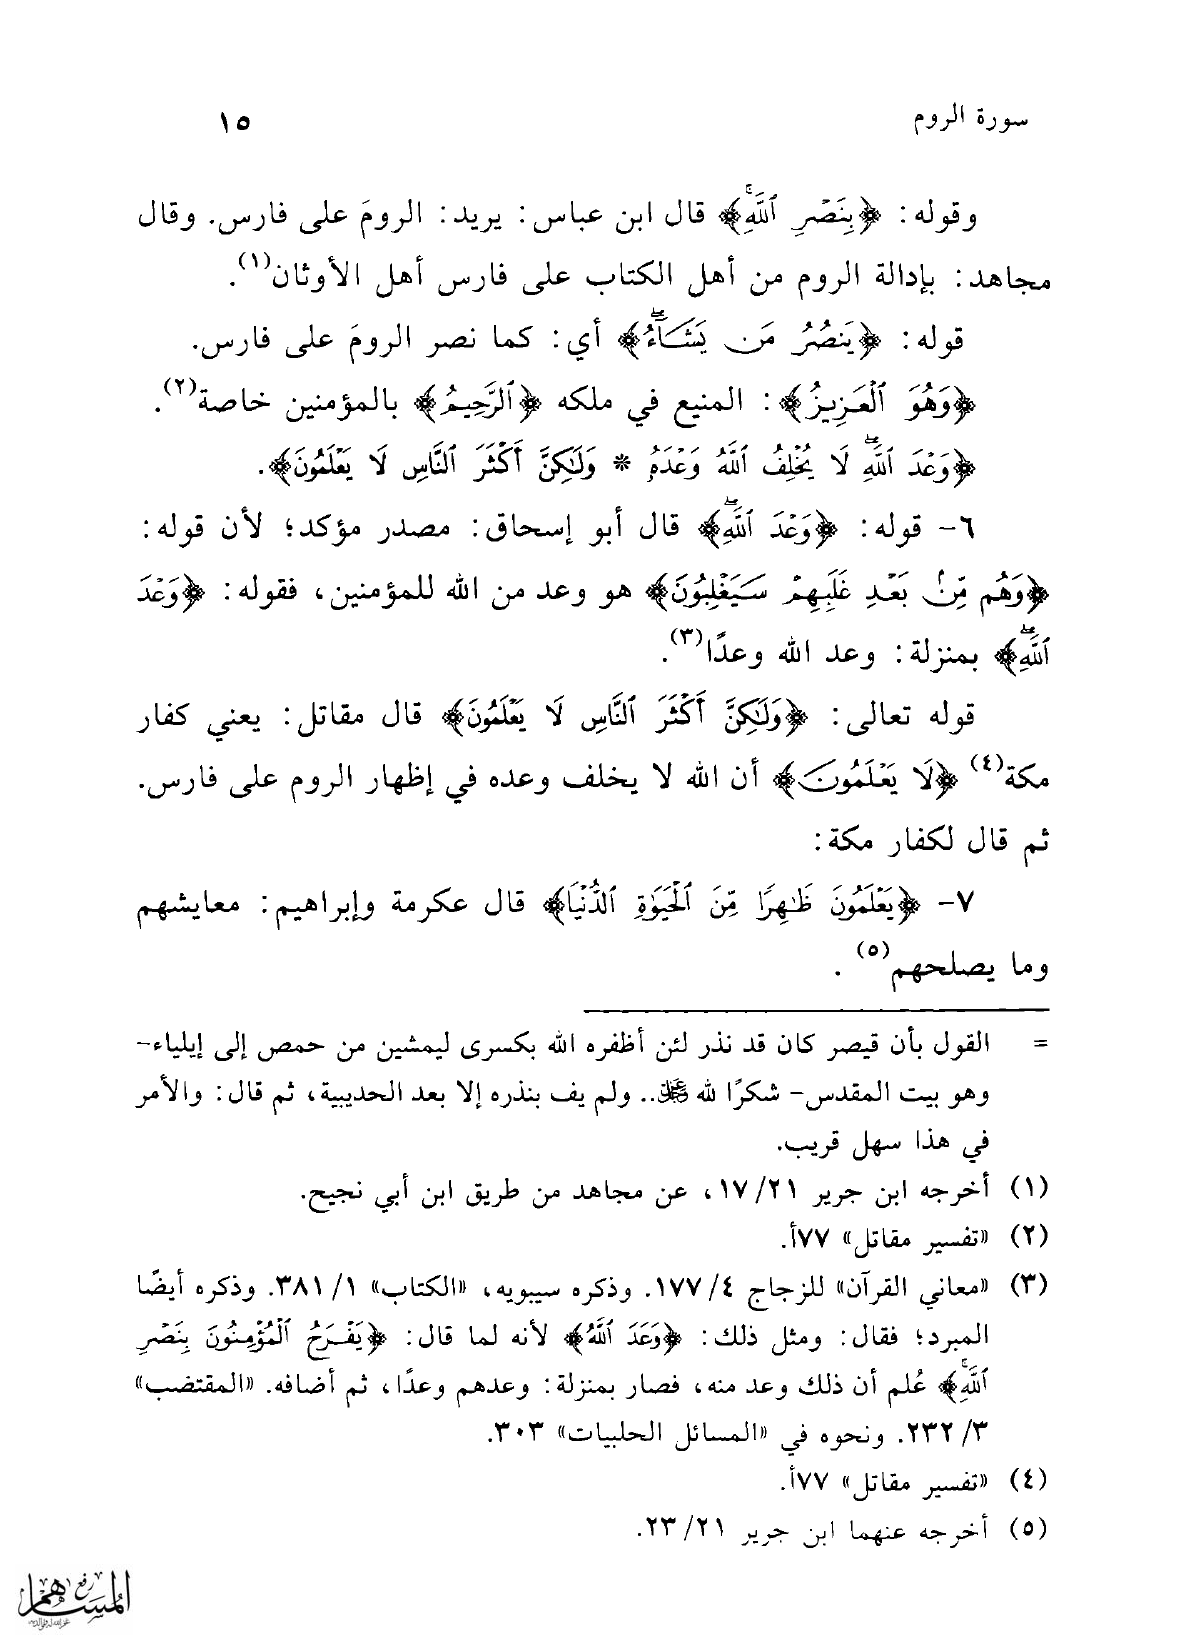 سورة الروم ١٥
وقوله: ﴿بِنَصْرِ ٱللَّهِۚ﴾ قال ابن عباس: يريد: الرومَ على فارس. وقال
مجاهد: بإدالة الروم من أهل الكتاب على فارس أهل الأوثان(١).
قوله: ﴿يَنصُرُ مَن يَشَآءُۖ﴾ أي: كما نصر الرومَ على فارس.
﴿وَهُوَ ٱلْعَزِيزُ﴾: المنيع في ملكه ﴿ٱلرَّحِيمُ﴾ بالمؤمنين خاصة(٢).
﴿وَعْدَ ٱللَّهِۖ لَا يُخْلِفُ ٱللَّهُ وَعْدَهُۥ * وَلَٰكِنَّ أَكْثَرَ ٱلنَّاسِ لَا يَعْلَمُونَ﴾.
٦- قوله: ﴿وَعْدَ ٱللَّهِۖ﴾ قال أبو إسحاق: مصدر مؤكد؛ لأن قوله:
﴿وَهُم مِّنۢ بَعْدِ غَلَبِهِمْ سَيَغْلِبُونَ﴾ هو وعد من الله للمؤمنين، فقوله: ﴿وَعْدَ
ٱللَّهِۖ﴾ بمنزلة: وعد الله وعدًا(٣).
قوله تعالى: ﴿وَلَٰكِنَّ أَكْثَرَ ٱلنَّاسِ لَا يَعْلَمُونَ﴾ قال مقاتل: يعني كفار
مكة(٤) ﴿لَا يَعْلَمُونَ﴾ أن الله لا يخلف وعده في إظهار الروم على فارس.
ثم قال لكفار مكة:
٧- ﴿يَعْلَمُونَ ظَٰهِرًا مِّنَ ٱلْحَيَوٰةِ ٱلدُّنْيَا﴾ قال عكرمة وإبراهيم: معايشهم
وما يصلحهم(٥).
= القول بأن قيصر كان قد نذر لئن أظفره الله بكسرى ليمشين من حمص إلى إيلياء-
وهو بيت المقدس- شكرًا لله ﷿.. ولم يف بنذره إلا بعد الحديبية، ثم قال: والأمر
في هذا سهل قريب.
(١) أخرجه ابن جرير ٢١/١٧، عن مجاهد من طريق ابن أبي نجيح.
(٢) «تفسير مقاتل» ٧٧أ.
(٣) «معاني القرآن» للزجاج ٤/١٧٧. وذكره سيبويه، «الكتاب» ١/٣٨١. وذكره أيضًا
المبرد؛ فقال: ومثل ذلك: ﴿وَعَدَ ٱللَّهُ﴾ لأنه لما قال: ﴿يَفْرَحُ ٱلْمُؤْمِنُونَ بِنَصْرِ
ٱللَّهِۚ﴾ عُلم أن ذلك وعد منه، فصار بمنزلة: وعدهم وعدًا، ثم أضافه. «المقتضب»
٣/٢٣٢. ونحوه في «المسائل الحلبيات» ٣٠٣.
(٤) «تفسير مقاتل» ٧٧أ.
(٥) أخرجه عنهما ابن جرير ٢١/٢٣.